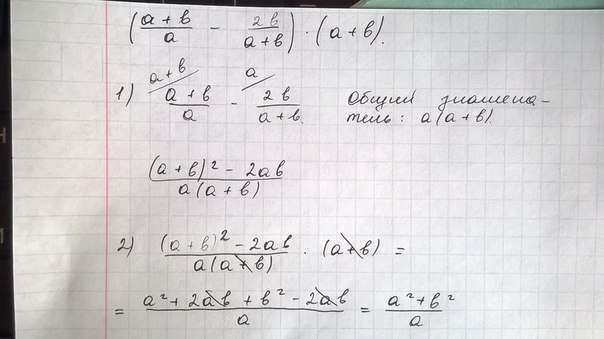 ((a + b)/a − 2b/(a + b)) · (a + b).
1) (a + b)/a − 2b/(a + b). Общий знамена-
a + b / a /
тель: a(a + b)
((a + b)² − 2ab)/(a(a + b))
2) ((a + b)² − 2ab)/(a(a + b)) · (a + b) =
= (a² + 2ab + b² − 2ab)/a = (a² + b²)/a